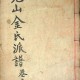 山金氏派譜卷之